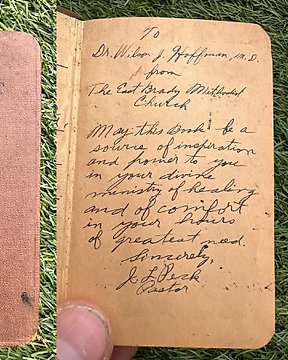 To
Dr. Wilson J. Hoffman, M.D.
from
The East Brady Methodist
Church
May this Book be a
source of inspiration
and power to you
in your divine
ministry of healing
and of comfort
in your hours
of greatest need.
Sincerely,
J. L. Peck
Pastor